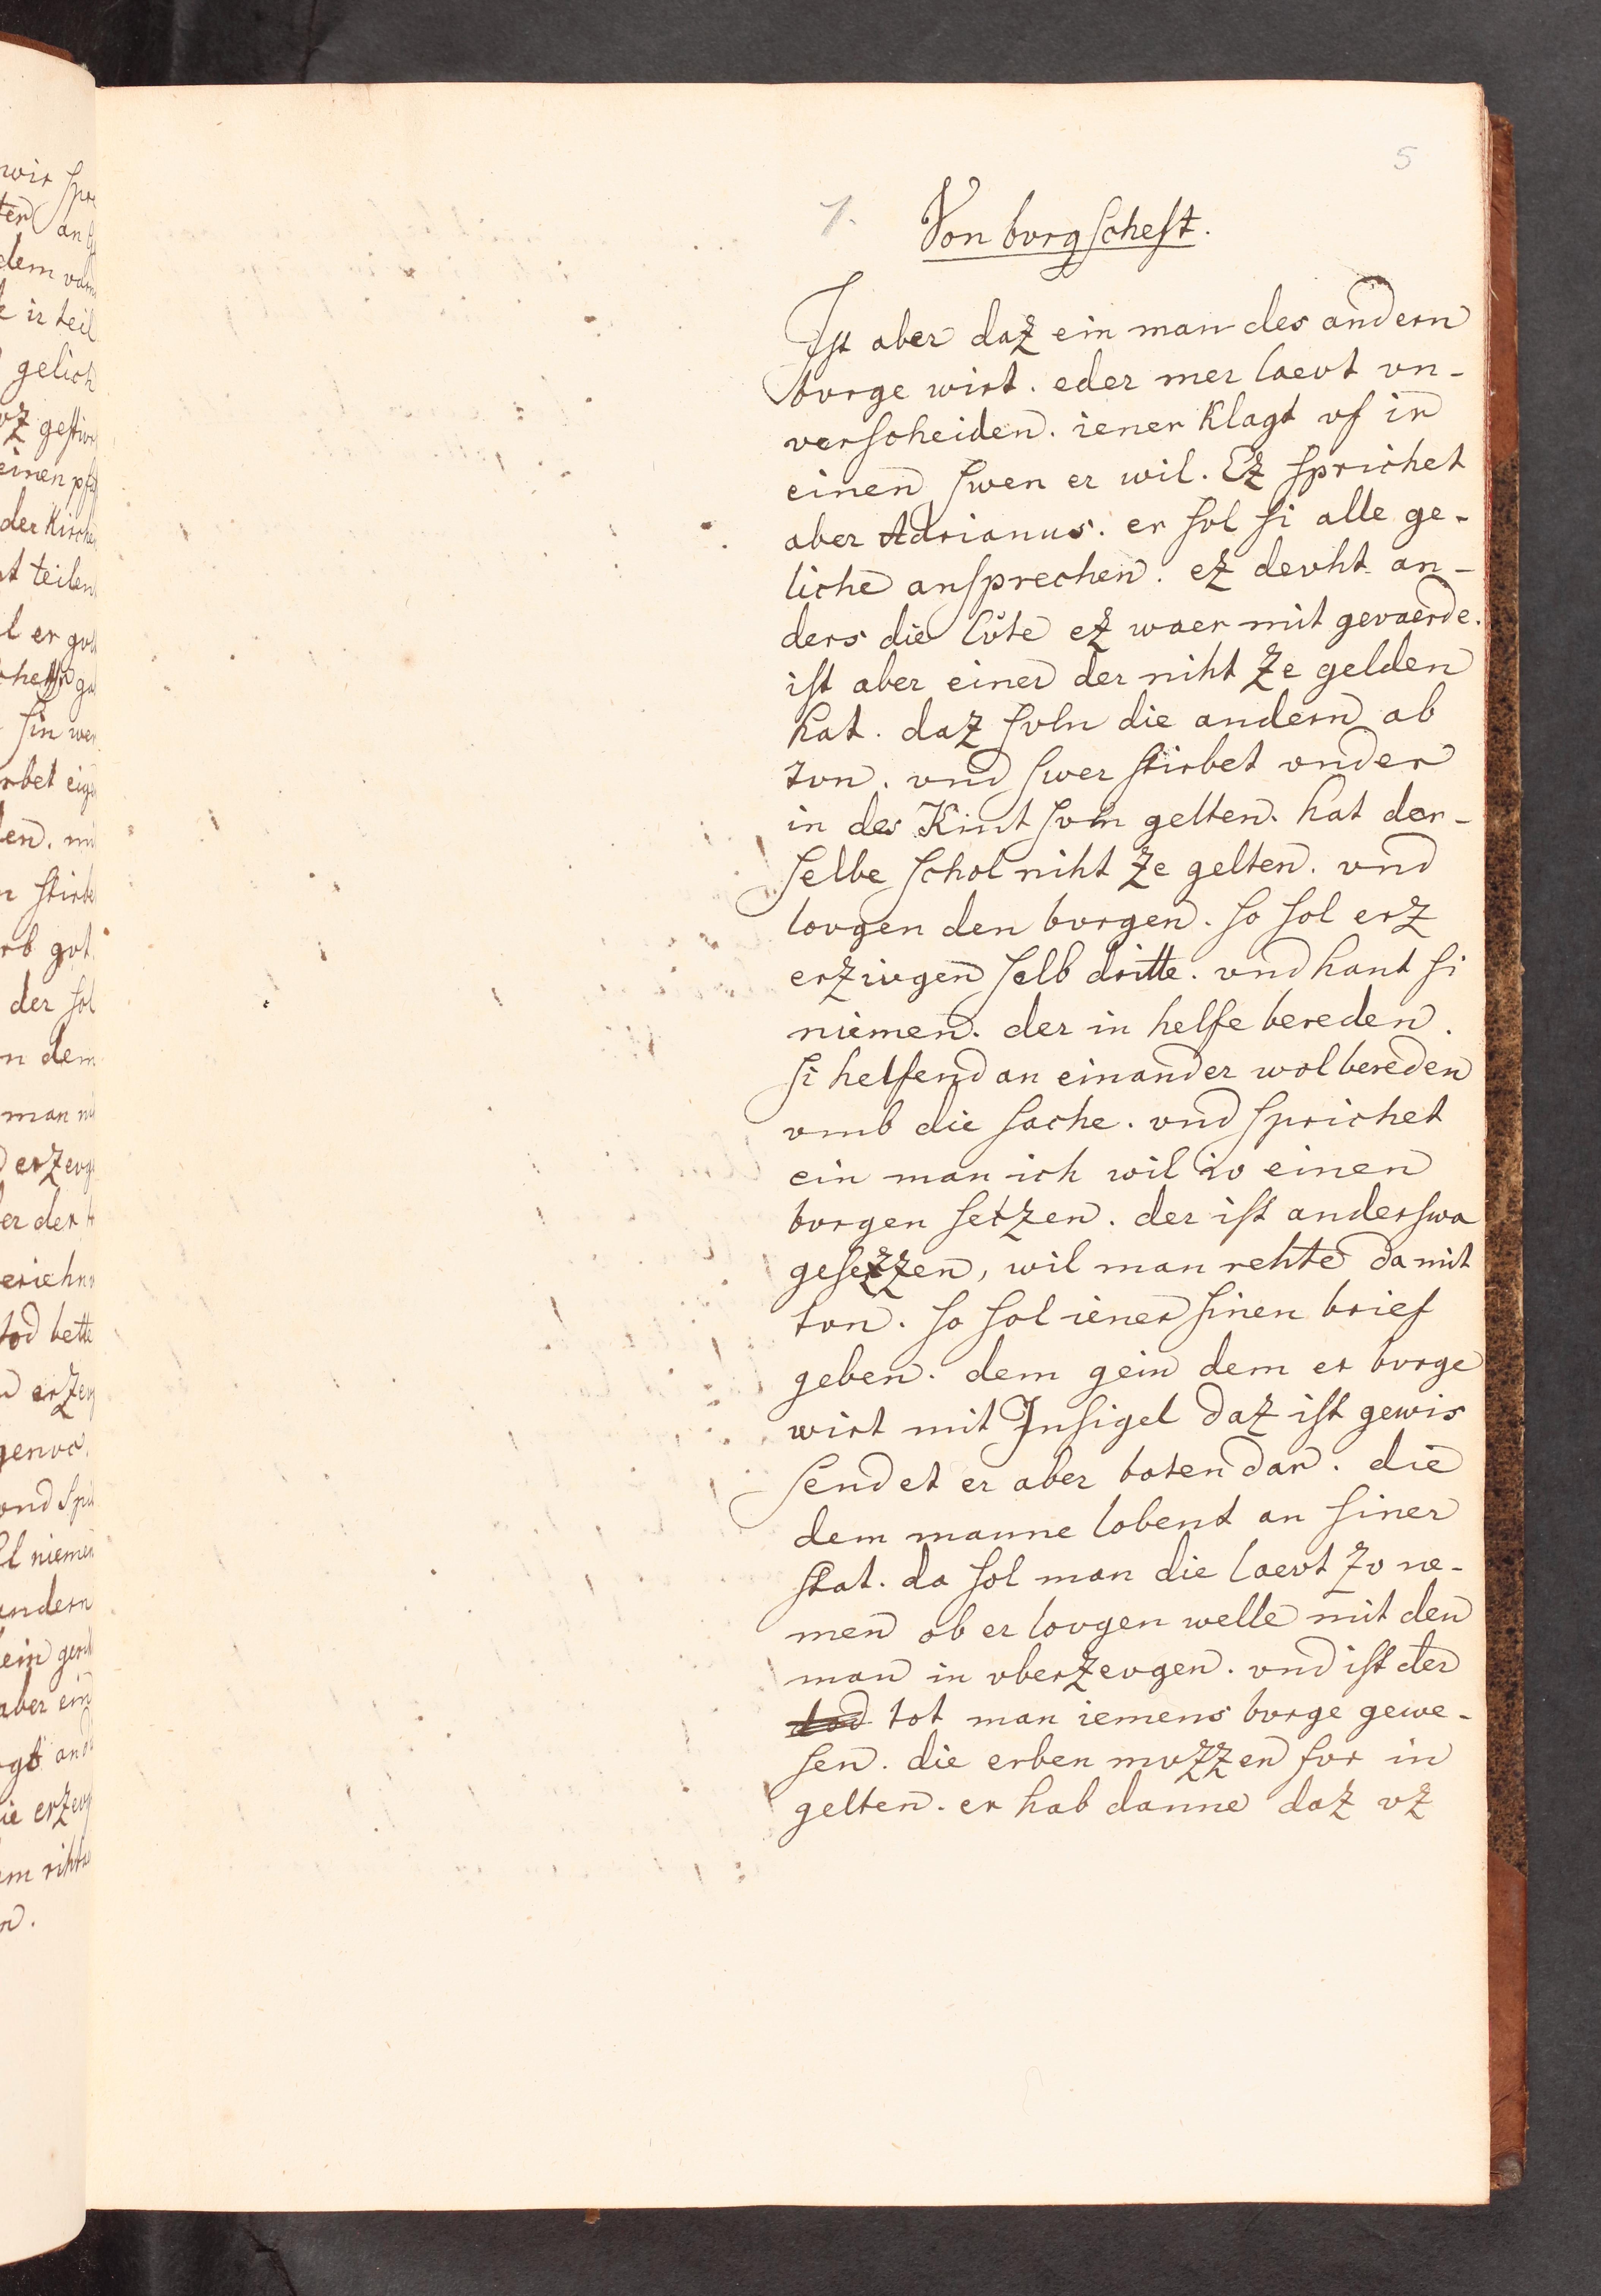 5
7. Von bvrgscheft.
Ist aber daz ein man des andern
bvrge wirt. eder mer laevt vn-
verscheiden. iener klagt vf in
einen swen er wil. Ez sprichet
aber Adrianus. er sol si alle ge-
liche ansprechen. ez devht an-
ders die lv̊te ez waer mit gevaerde.
ist aber einer der niht ze gelden
hat. daz svln die andern ab
tvn. vnd swer stirbet vnder
in des Kint svln gelten. hat der-
selbe schol niht ze gelten. vnd
lovgen den bvrgen. so sol erz
erzivgen selb dritte. vnd hant si
niemen. der in helfe bereden.
si helfend an einander wol bereden
vmb die sache. vnd sprichet
ein man ich wil iv einen
bvrgen setzen. der ist anderswa
gesezzen, wil man rehte da mit
tvn. so sol iener sinen brief
geben. dem gein dem er bvrge
wirt mit Insigel daz ist gewis
sendet er aber boten dar. die
dem manne lobent an siner
stat. da sol man die laevt zv ne-
men ob er lovgen welle mit den
man in vberzevgen. vnd ist der
tod tot man iemens bvrge gewe-
sen. die erben mvzzen fvr in
gelten. er hab danne daz vz